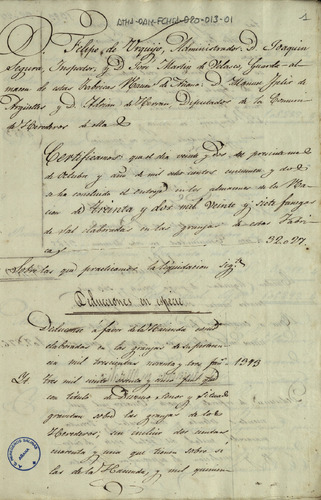 AHN-OAM-FCHCA-020-013-01
1
D. Felipe de Urquijo, Administrador, D. Joaquin
Segura, Inspector, y D. José Martin de Velasco, Guarda-al
macen de estas Fabricas Nacion.s de D. Manuel Felix de
Argüelles y D. de Herran Diputados de la Comun.
de Herederos de ella
Certificamos: que el dia veinte y dos del presente mes
de Octubre y año de mil ochocientos cincuenta y dos
se ha concluido el entroje en los almacenes de la Na-
cion de Treinta y dos mil veinte y siete fanegas
de sal elaboradas en las granjas de estas Fabri-
cas 32.027
Sobre las que practicamos la liquidacion sig.te
Deduciones en especie
Deducense á favor de la Hacienda
elaboradas en las granjas de su pertenencia
mil trescientas noventa y tres fan.s 1393
It. tres mil ciento y cinco fan.s que
con titulo de Diezmo, y
gravitan sobre las granjas de los
Herederos, con inclusion de doscientas
cuarenta y una que tienen sobre si
las de la Hacienda, y mil quinien